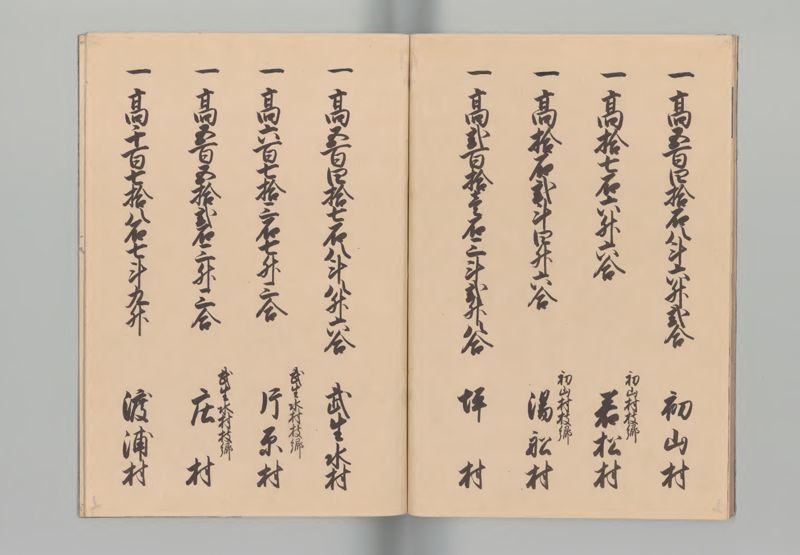 一高五百四拾石八斗六升弐合 初山村
一高拾七石六升六合 初山村枝郷 若松村
一高拾石弐斗四升六合 初山村枝郷 湯舩村
一高弐百拾壱石三斗弐升八合 坪村
一高五百四拾七石八斗八升六合 武生水村
一高六百七拾三石七升三合 武生水村枝郷 片原村
一高五百五拾弐石三升三合 武生水村枝郷 庄村
一高千百七拾八石七斗九升 渡浦村